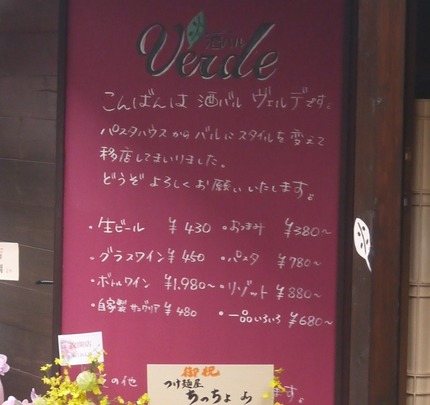 酒バル
Verde
こんばんは 酒バル ヴェルデです。
パスタハウスから バルに スタイルを 変えて
移店してまいりました。
どうぞ よろしく お願いいたします。
・生ビール ¥430 ・おつまみ ¥380～
・グラスワイン ¥450 ・パスタ ¥780～
・ボトルワイン ¥1.980～ ・リゾット ¥880～
・自家製 サングリア ¥480 ・一品いろいろ ¥680～
の他
ます。
御祝
つけ麺屋
ちっちょ